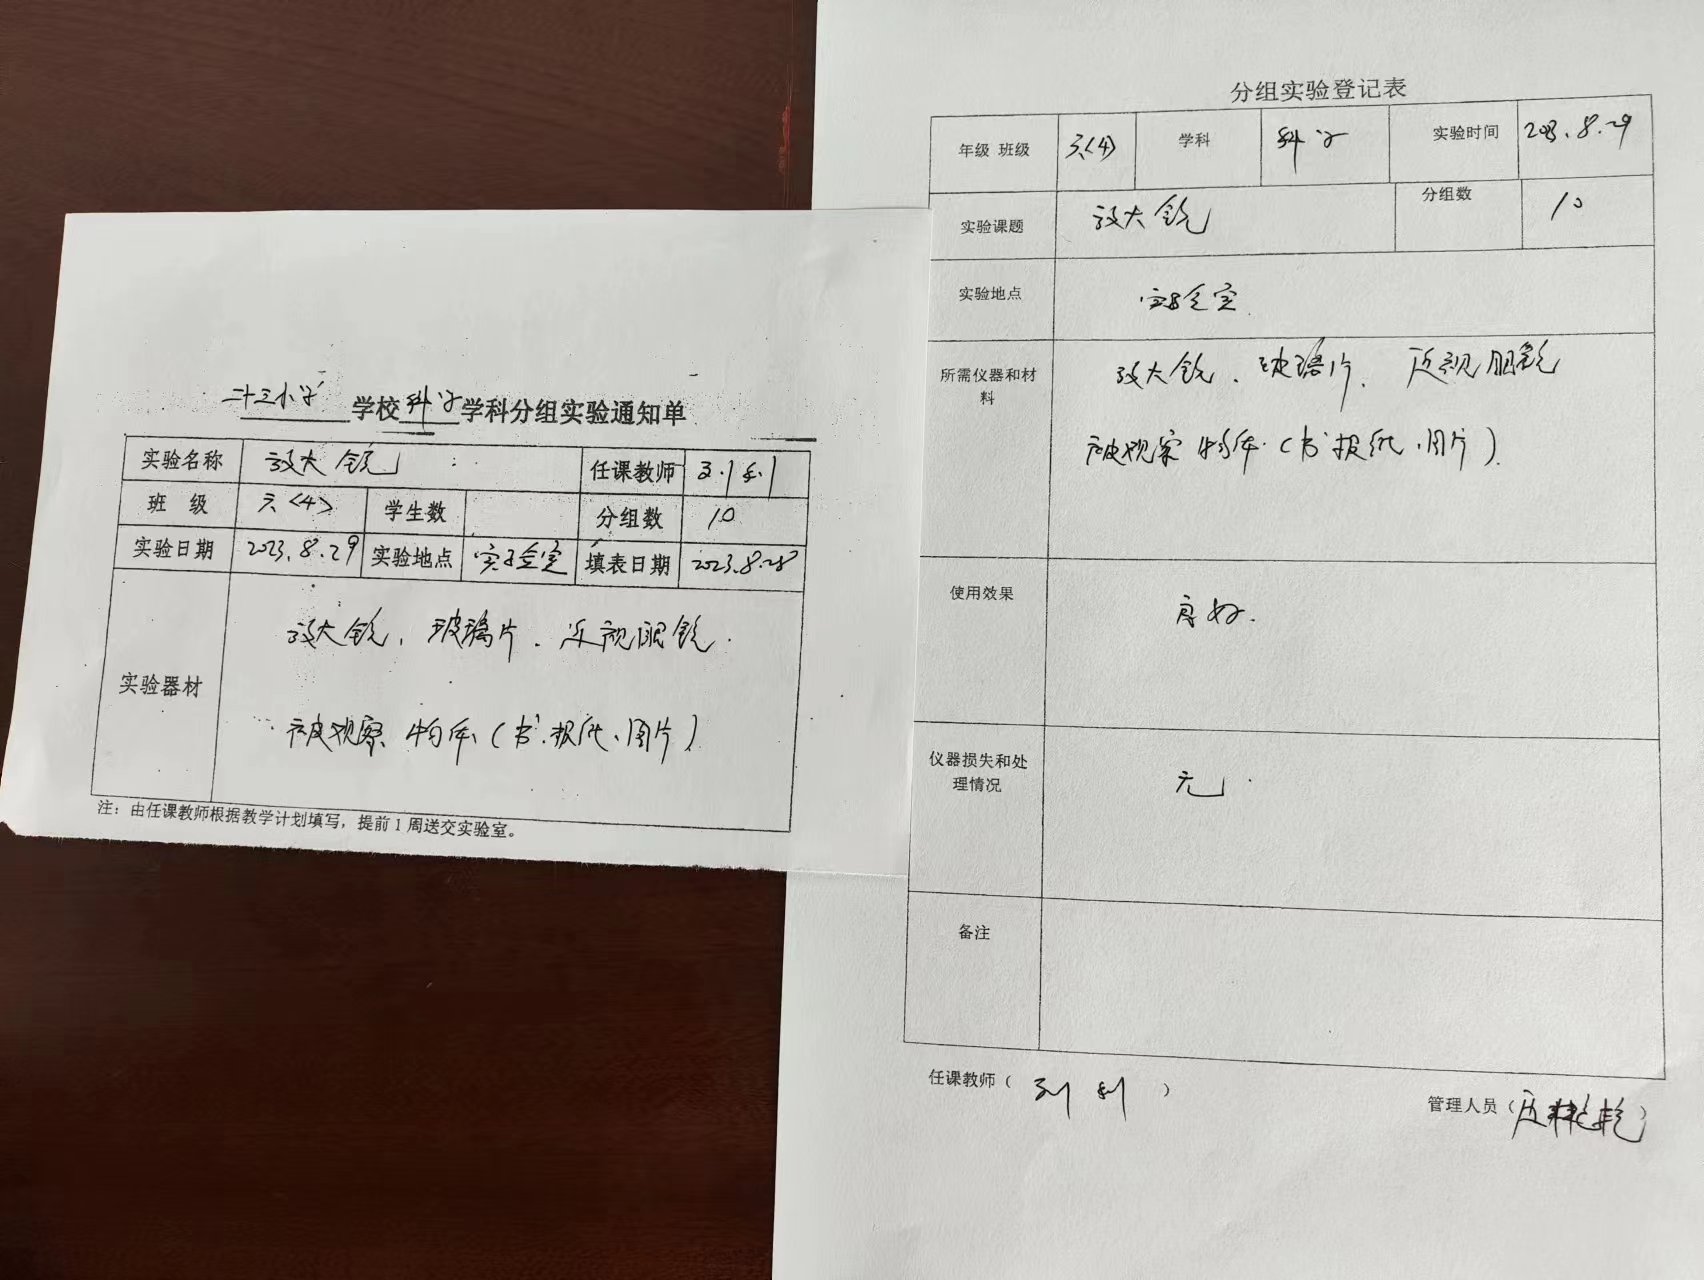 二十三小学 学校 科学 学科分组实验通知单
实验名称 放大镜 任课教师 刘利
班 级 六<4> 学生数 分组数 10
实验日期 2023.8.29 实验地点 实验室 填表日期 2023.8.28
实验器材
放大镜、玻璃片、近视眼镜.
被观察物体(书、报纸、图片)
注：由任课教师根据教学计划填写，提前1周送交实验室。
分组实验登记表
年级 班级 六<4> 学科 科学 实验时间 2023.8.29
实验课题 放大镜 分组数 10
实验地点 实验室
所需仪器和材料
放大镜、玻璃片、近视眼镜
被观察物体(书、报纸、图片).
使用效果 良好.
仪器损失和处理情况 无.
备注
任课教师（ 刘利 ）
管理人员（ ）